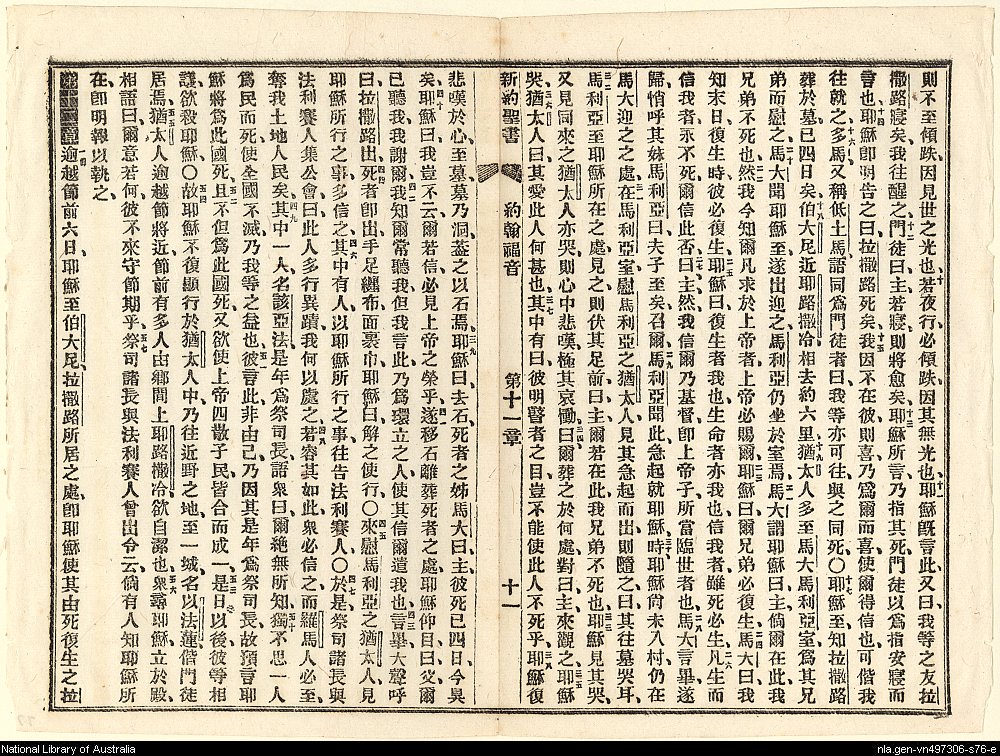 則不至傾跌、因見世之光也、若夜行必傾跌、因其無光也、耶穌旣言此、又曰、我等之友拉
撒路寢矣、我往醒之、門徒曰、主、若寢則將愈矣、耶穌所言、乃指其死、門徒以爲指安寢而
言也、耶穌卽明告之曰、拉撒路死矣、我因不在彼則喜、乃爲爾而喜、使爾得信也、可偕我
往就之、多馬又稱低土馬、語同爲門徒者曰、我等亦可往、與之同死、〇耶穌至、知拉撒路
葬於墓已四日矣、伯大尼近耶路撒冷、相去約六里、猶太人多至馬大馬利亞室、爲其兄
弟而慰之、馬大聞耶穌至、遂出迎之、馬利亞仍坐於室焉、馬大謂耶穌曰、主、倘爾在此、我
兄弟不死也、然我今知爾凡求於上帝者、上帝必賜爾、耶穌曰、爾兄弟必復生、馬大曰、我
知末日復生時、彼必復生、耶穌曰、復生者我也、生命者亦我也、信我者雖死必生、凡生而
信我者、永不死、爾信此否、曰、主、然、我信爾乃基督、卽上帝子、所當臨世者也、馬大言畢、遂
歸、悄呼其妹馬利亞曰、夫子至矣、召爾、馬利亞聞此、急起就耶穌、時耶穌尙未入村、仍在
馬大迎之之處、在馬利亞室慰馬利亞之猶太人、見其急起而出、則隨之曰、其往墓哭耳、
馬利亞至耶穌所在之處、見之、則伏其足前曰、主、爾若在此、我兄弟不死也、耶穌見其哭、
又見同來之猶太人亦哭、則心中悲嘆、極其哀慟、曰、爾葬之於何處、對曰、主、來觀之、耶穌
哭、猶太人曰、其愛此人何甚也、其中有曰、彼明瞽者之目、豈不能使此人不死乎、耶穌復
新約聖書 約翰福音 第十一章 十一
悲嘆於心、至墓、墓乃洞、蓋之以石焉、耶穌曰、去石、死者之姊馬大曰、主、彼死已四日、今臭
矣、耶穌曰、我豈不云、爾若信、必見上帝之榮乎、遂移石離葬死者之處、耶穌仰目曰、父、爾
已聽我、我謝爾、我知爾常聽我、但我言此、乃爲環立之人、使其信爾遣我也、言畢、大聲呼
曰、拉撒路出、死者卽出、手足纏布、面裹巾、耶穌曰、解之使行、〇來慰馬利亞之猶太人、見
耶穌所行之事、多信之、其中有人、以耶穌所行之事、往告法利賽人、〇於是祭司諸長與
法利賽人集公會曰、此人多行異蹟、我何以處之、若容其如此、衆必信之、而羅馬人必至、
奪我土地人民矣、其中一人、名該亞法、是年爲祭司長、語衆曰、爾絕無所知、獨不思一人
爲民而死、使全國不滅、乃我等之益也、彼言此非由己、乃因其是年爲祭司長、故預言耶
穌將爲此國死、且不但爲此國死、又欲使上帝四散子民、皆合而成一、是日以後、彼等相
議欲殺耶穌、〇故耶穌不復顯行於猶太人中、乃往近野之地、至一城名以法蓮、偕門徒
居焉、猶太人逾越節將近、節前有多人由鄕間上耶路撒冷、欲自潔也、衆尋耶穌、立於殿、
相語曰、爾意若何、彼不來守節期乎、祭司諸長與法利賽人曾出令云、倘有人知耶穌所
在、卽明報以執之、
第十二章 逾越節前六日、耶穌至伯大尼、拉撒路所居之處、卽耶穌使其由死復生之拉
National Library of Australia
nla.gen-vn497306-s76-e